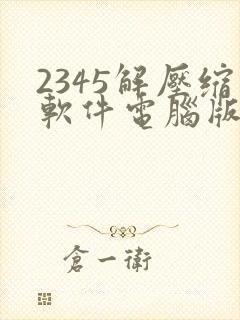 2345解壓縮
軟件電腦版
倉一衛